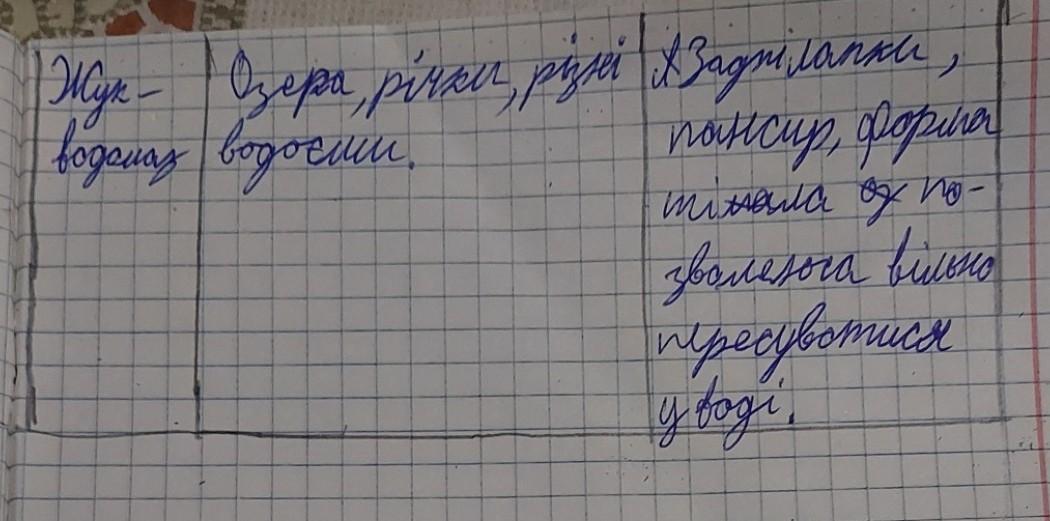 Жук-
водолаз
Озера, річки, різні
водоєми.
Задні лапки,
пансир, форма
тіла по-
зволяє вільно
пересуватися
у воді.